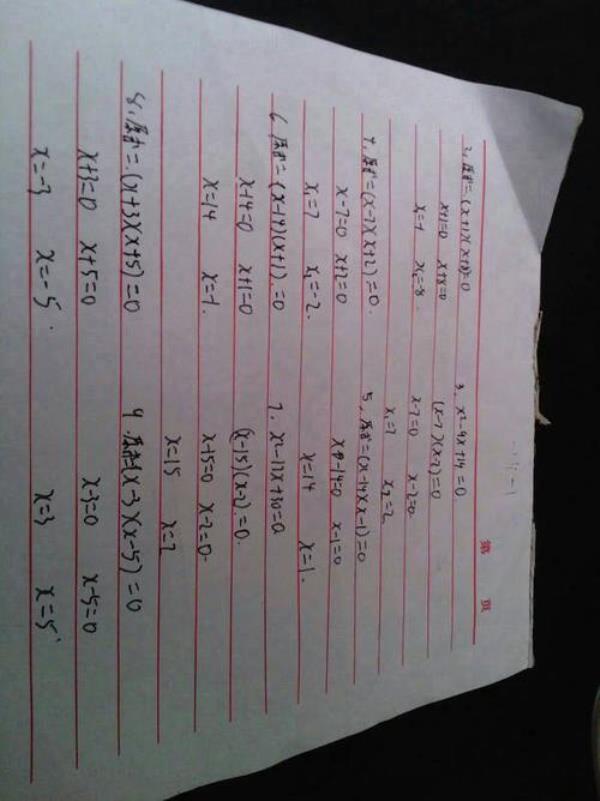 第 页
2, 原式=(x+1)(x+8)=0
x+1=0 x+8=0
x₁=-1 x₂=-8
3, x²-9x+14=0
(x-7)(x-2)=0
x-7=0 x-2=0
x₁=7 x₂=2
4, 原式=(x-7)(x+2)=0
x-7=0 x+2=0
x₁=7 x₂=-2
5, 原式=(x-14)(x-1)=0
x-14=0 x-1=0
x=14 x=1
6, 原式=(x-14)(x+1)=0
x-14=0 x+1=0
x=14 x=-1
7, x²-17x+30=0
(x-15)(x-2)=0
x-15=0 x-2=0
x=15 x=2
8, 原式=(x+3)(x+5)=0
x+3=0 x+5=0
x=-3 x=-5
9, 原式=(x-3)(x-5)=0
x-3=0 x-5=0
x=3 x=5